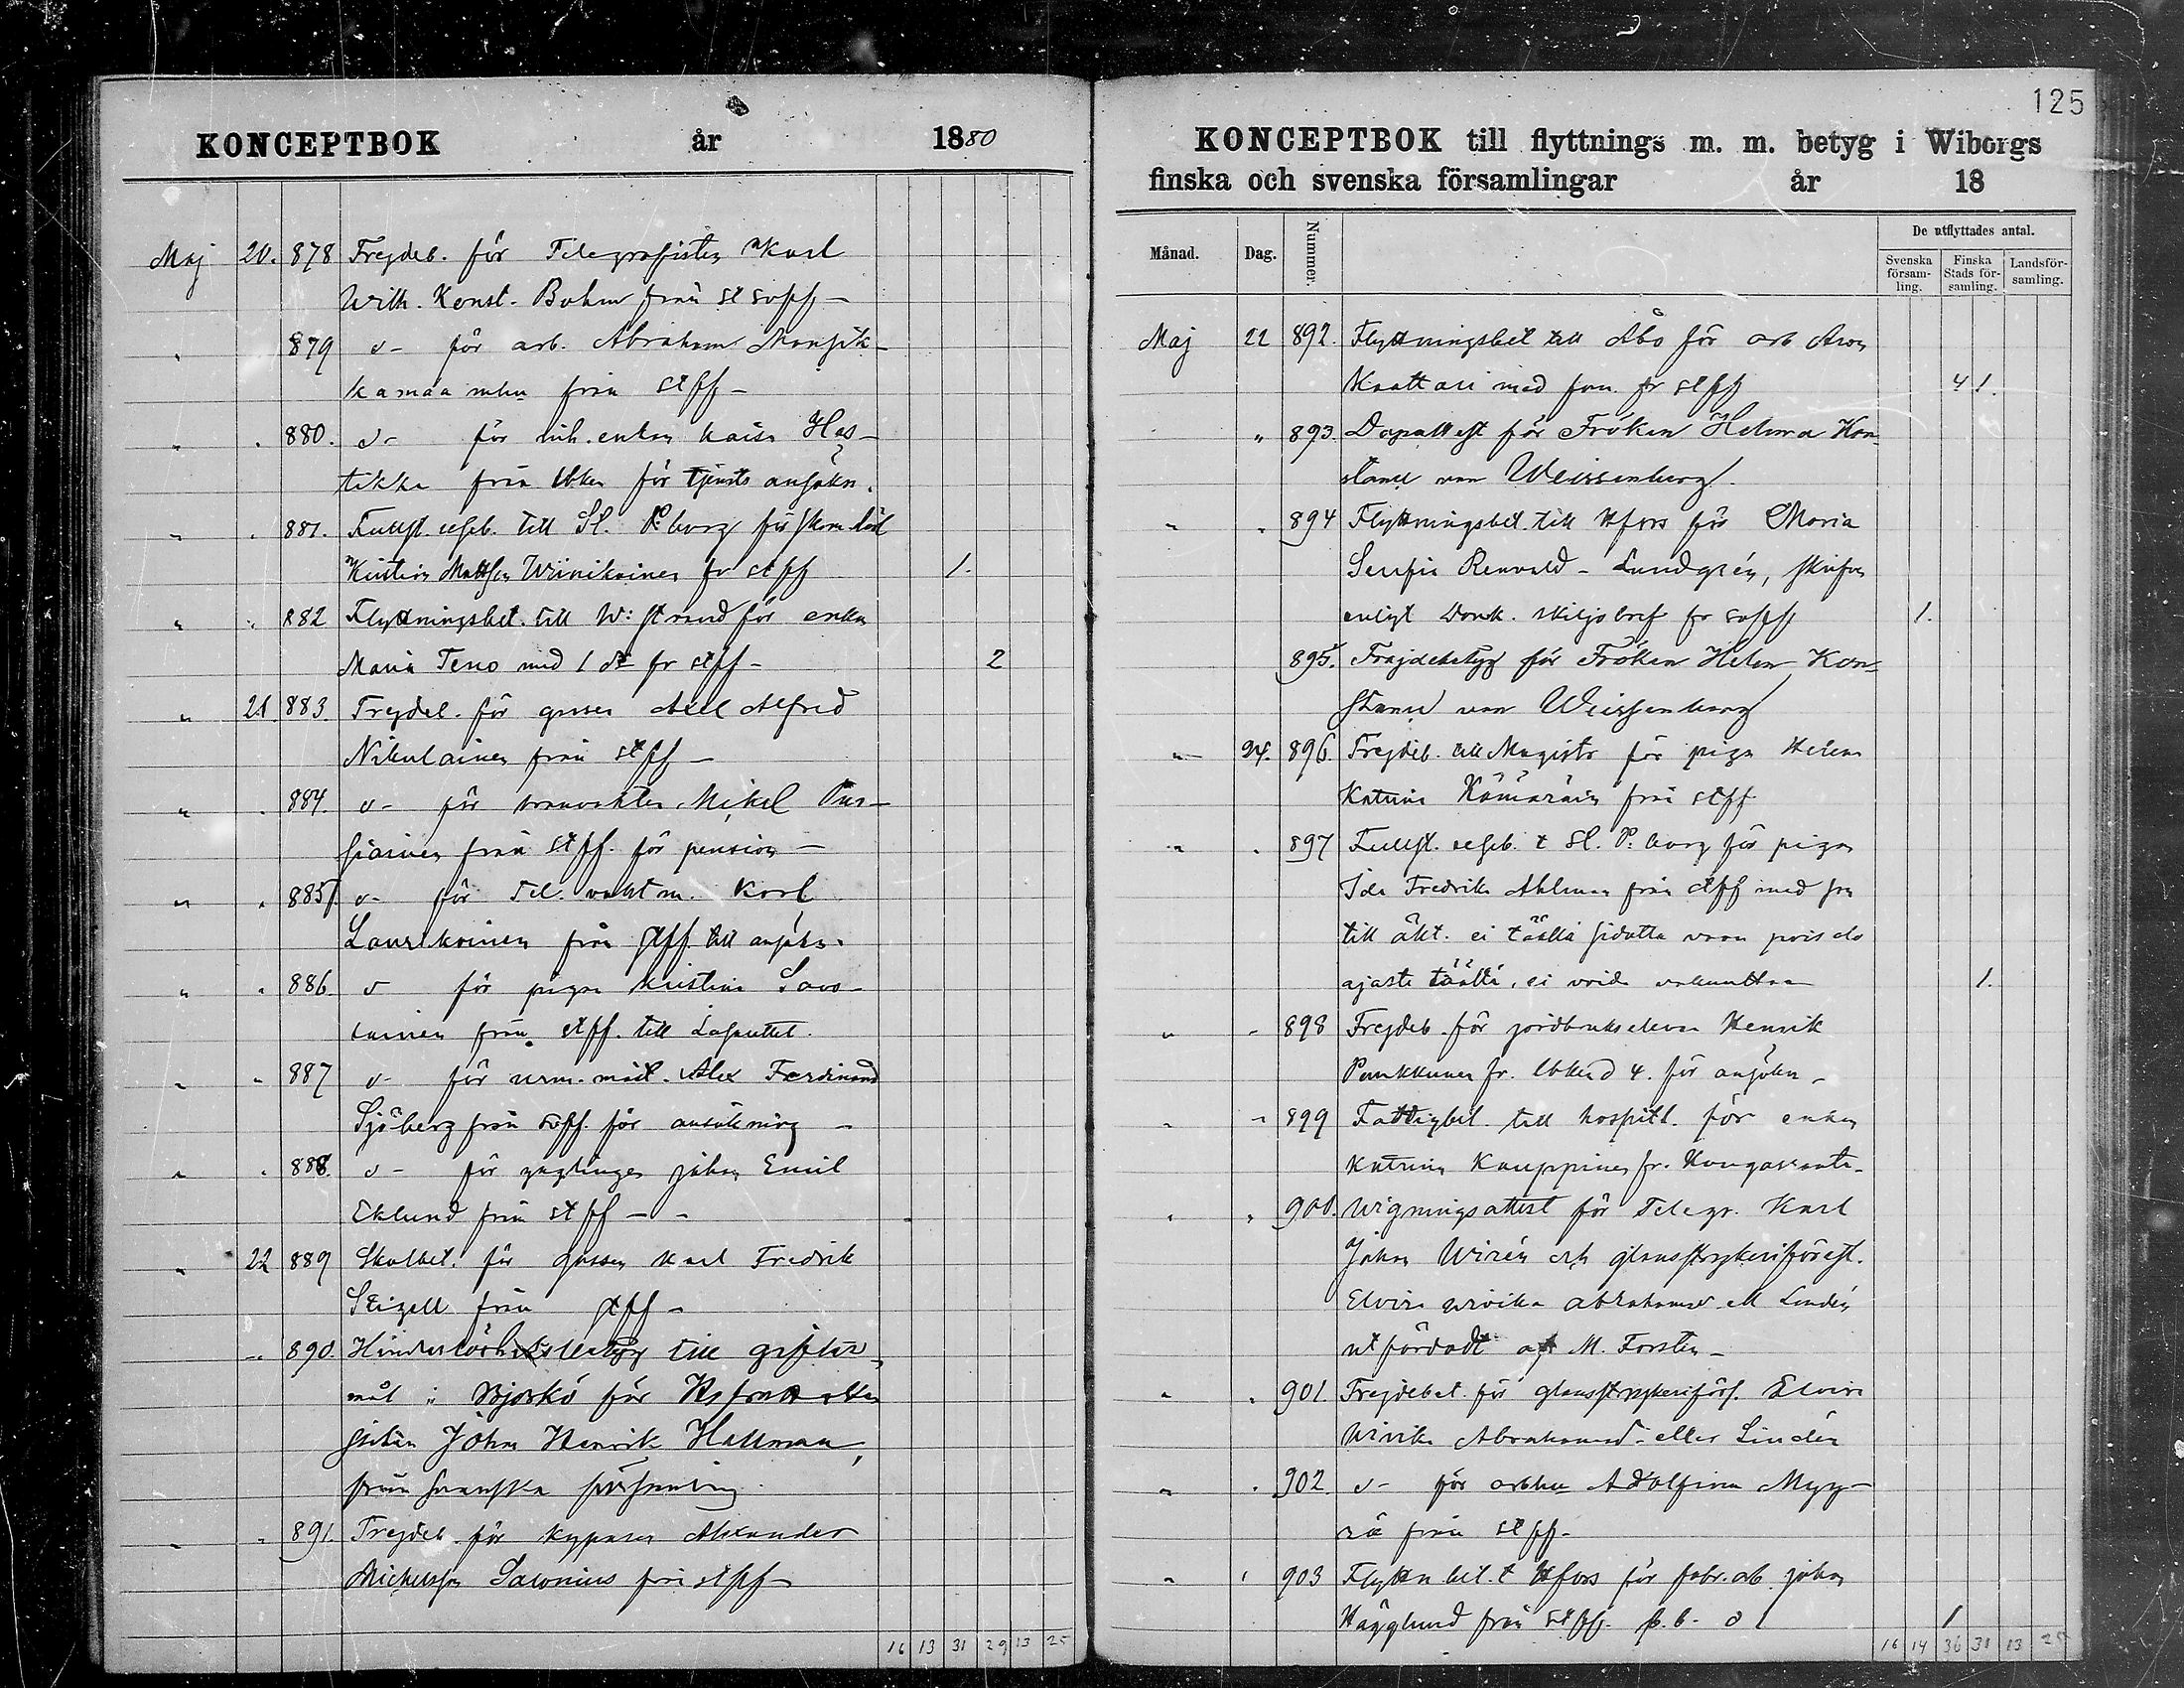 KONCEPTBOK år 1880
Maj 20. 878 Frejdeb. för Telegrafisten Karl
Wilh. Konst. Bohm från st svff -
" 879 d- för arb. Abraham Mansik-
kamäa från stff -
" " 880. d- för inh. enkan Kaisa Has-
tikka från för tjensts ansökn.
" " 881. Fullst. till St. P:borg för
Kristian Mattsson Wiinikainen fr stff 1.
" " 882 Flyttningsbet. till W:strand för enkan
Maria Teno med 1 dr fr stff - 2
" 21 883. Frejdeb. för gossen Axel Alfred
Nikulainen från stff -
" " 884. d- för Mikel Pur-
siainen från stff. för pension -
" " 885. d- för Tel. vaktm. Karl
Laurikainen från stff. till ansökn.
" " 886. d för pigan Kristina Savo-
lainen från stff. till Lasarettet.
" " 887 d- för Alex Ferdinand
Sjöberg från svff. för ansökning -
" " 888. d- för ynglingen Johan Emil
Eklund från stff - -
" 22 889 Skolbet. för gossen Karl Fredrik
Stigell från stff -
" 890. Hinderlöshetsbetyg till gifter-
mål i Björkö för
Johan Henrik Hallman,
från svenska församling.
" " 891. Frejdeb för kyparen Alexander
Michelsson Salonius från stff -
16 13 31 29 13 25
125
KONCEPTBOK till flyttnings m. m. betyg i Wiborgs
finska och svenska församlingar år 18
Månad. Dag. Nummer. De utflyttades antal.
Svenska försam-ling. Finska Stads för-samling. Landsför-samling.
Maj 22 892. Flyttningsbet till Åbo för arb Aron
Kaattari med fam. fr stff 4 1.
" 893. Dopattest för Fröken Helena Kon-
stance von Weissenberg.
" " 894 Flyttningsbet. till Hfors för Maria
Serafia Renvald - Lundgrén,
enligt Domk. skiljobref fr svff 1.
895. Frejdebetyg för Fröken Helen Kon-
stance von Weissenberg
" 24. 896. Frejdeb. till Magistr för pigan Helena
Katrina Kämäräin från stff
" " 897 Fullst. t St. P:borg för pigan
Ida Fredrika Ahlman från stff med
till äkt. ei täällä sidottu vaan pois
ajasta täältä, ei voida vakuuttaa 1.
" " 898 Frejdeb. för jordbrukseleven Henrik
Punkkinen fr. 4. för ansökn -
" " 899 Fattigbet. till hospitl. för enkan
Katrina Kauppinen fr. Kangasranta.
" " 900. Wigningsattest för Telegr. Karl
Johan Wirén och glansstrykeriförest.
Elvira Ulrika Abrahamsd. ell Lindén
utfärdadt af M. Forstén -
" " 901. Frejdebet. för glansstrykeriförf. Elvira
Ulrika Abrahamsd. eller Lindén
" " 902. d- för Adolfina Myy-
rä från stff -
" " 903 Flyttn bet. t Hfors för fabr. arb. Johan
Hägglund från stff. 1
16 14 36 31 13 25